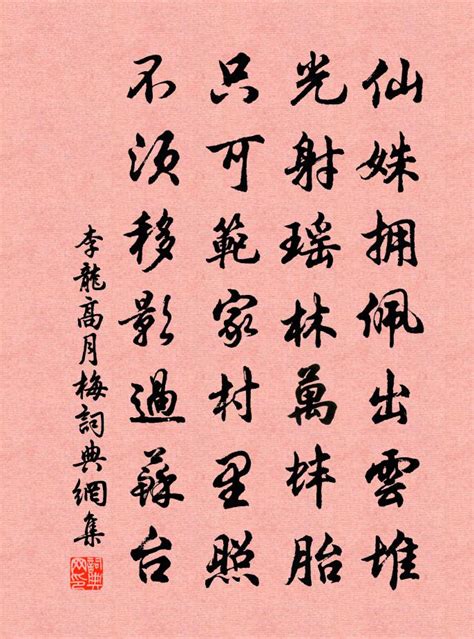 仙姝拥佩出雲堆
光射瑶林萬蚌胎
只可範家村里照
不須移影過蘇台
李龍高月梅詞典網集
詞典网印